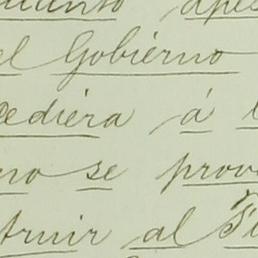 el Gobierno
cediera á
no se prov
truir al